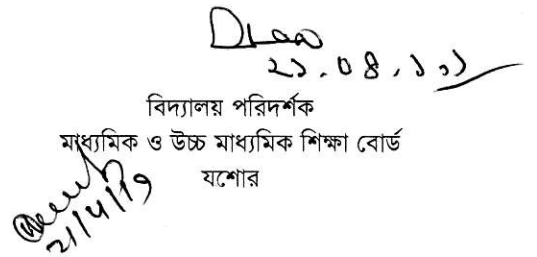 বিদ্যালয় পরিদর্শক
মাধ্যমিক ও উচ্চ মাধ্যমিক শিক্ষা বোর্ড
যশোর
21/4/19